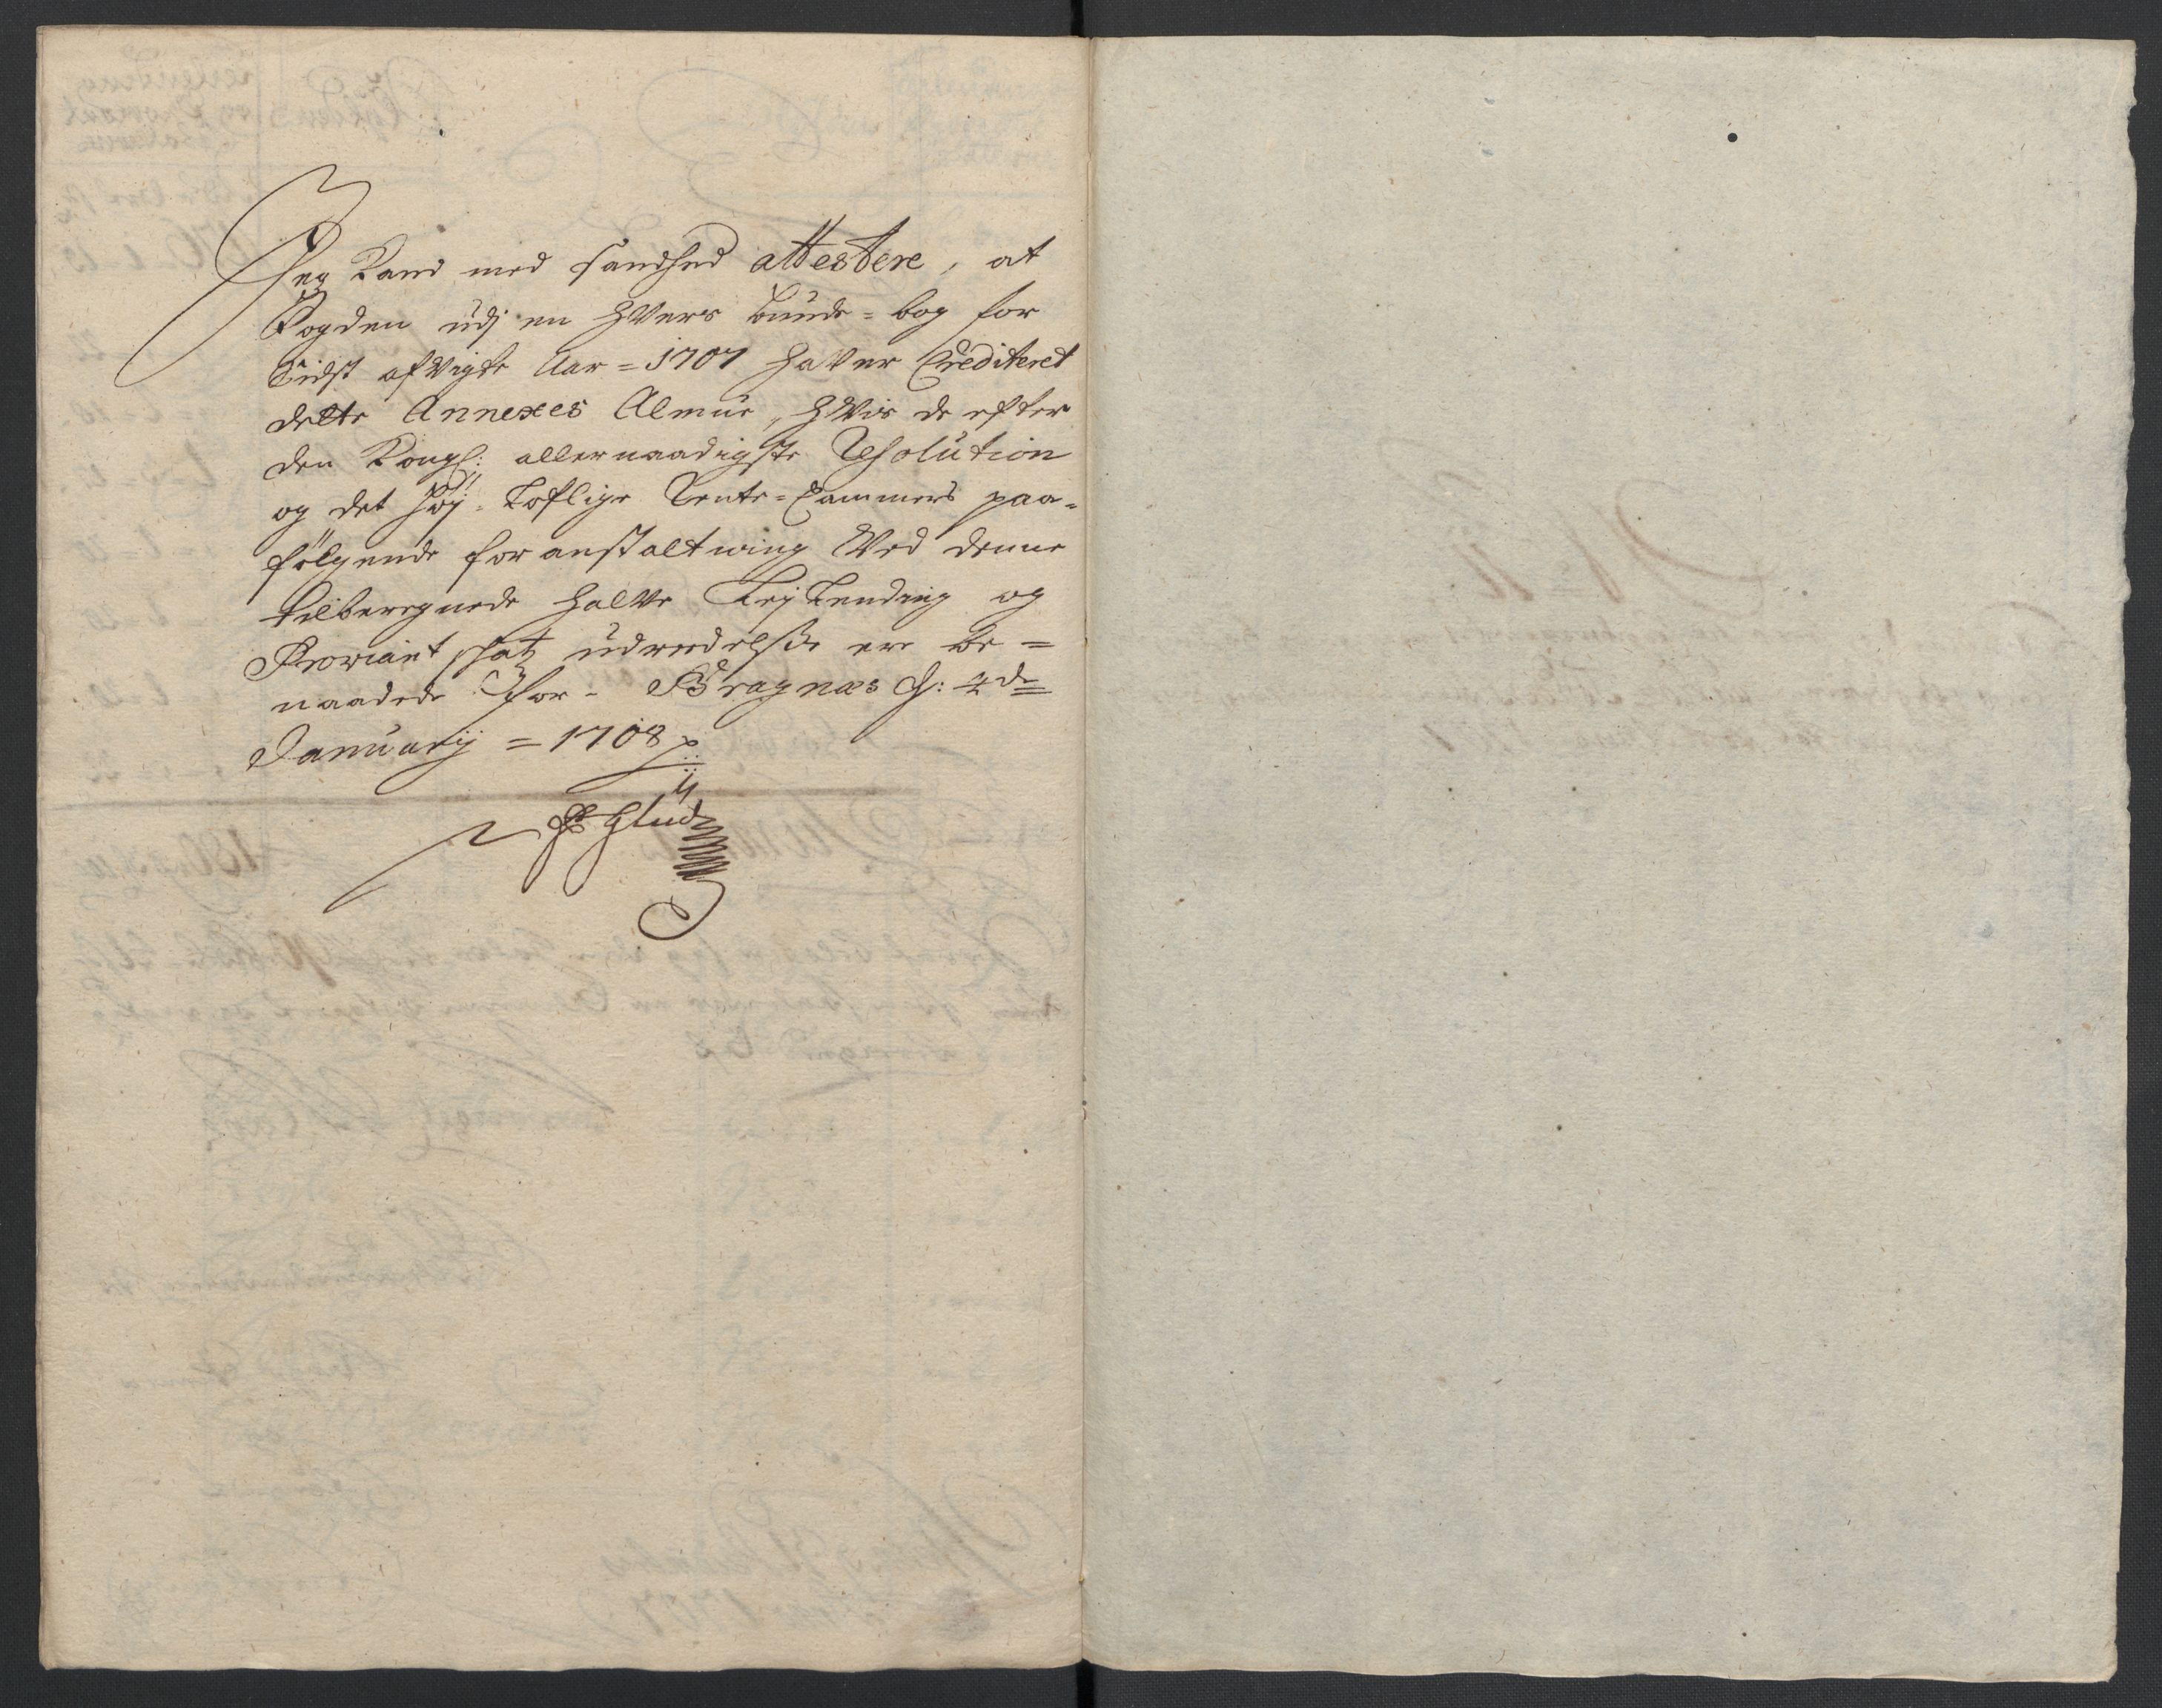 Jeg Kand med sandhed attestere, at
Fogden udj en hVers bunde=bog for
sidst afVigte Aar=1707 haVer Crediteret
dette Annexes Almue, hVis de efter
den Kongl: allernaadigste Resolution
og det høj=Loflige Rente=Cammers paa-
følgende foranstaltning Ved denne
tilberegnede halVe Lejlending og
Proviant skatz udreedelse ere be=
naadede for. Bragnæs d: 2de
January = 1708
Glud